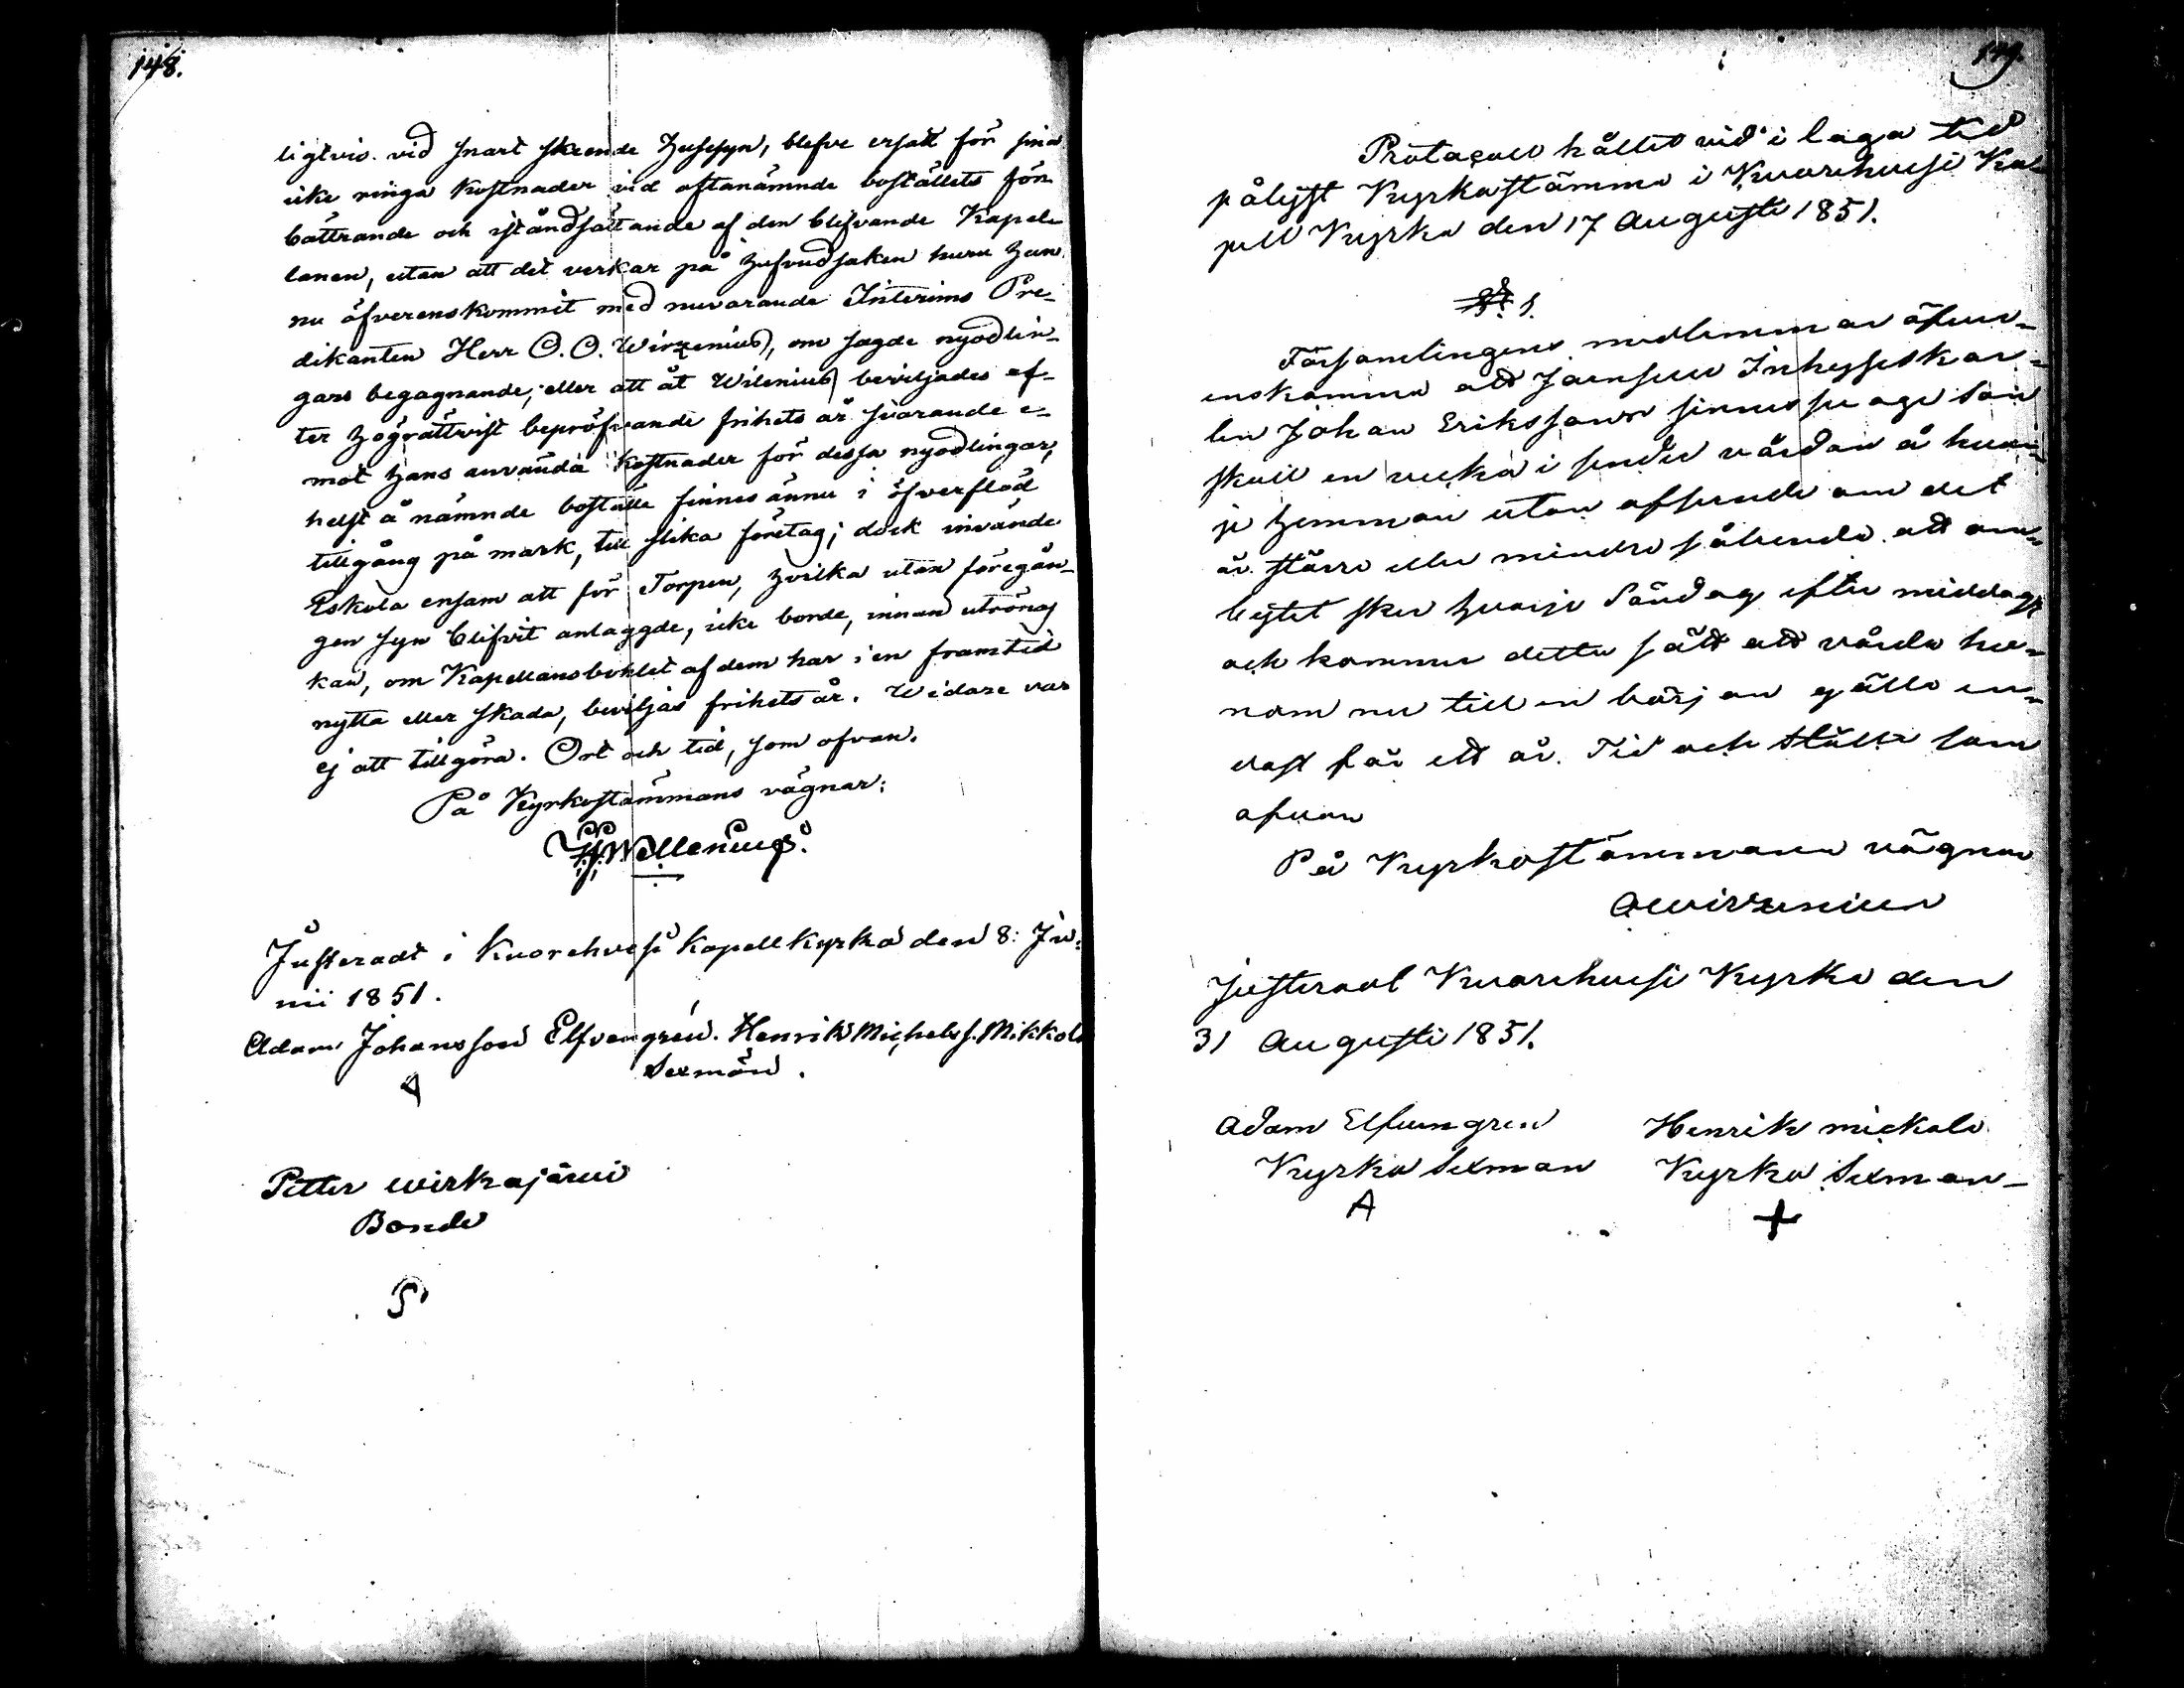 148.
ligtvis vid snart skeende Husesyn, blefve ersatt för sina
icke ringa kostnader vid oftanämnde boställets för-
bättrande och iståndsättande af den blifvande Kapel-
lanen, utan att det verkar på hufvudsaken huru han
nu öfverenskommit med nuvarande Interims Pre-
dikanten Herr O. O. Wirzenius, om sagde nyodlin-
gars begagnande; eller att åt Wilenius beviljades ef-
ter högrättvist bepröfvande frihets år svarande e-
mot hans använda kostnader för dessa nyodlingar,
helst å nämnde boställe finnes ännu i öfverflöd
tillgång på mark, till slika företag; dock invände
Eskola ensam att för Torpen, hvilka utan föregån-
gen syn blifvit anlaggde, icke borde, innan utrönas
kan, om Kapellansbohlet af dem har i en framtid
nytta eller skada, beviljas frihets år. Widare var
ej att tillgöra. Ort och tid, som ofvan.
På Kyrkostämmans vägnar:
Wellenius.
Justeradt i Kuorehvesi Kapell kyrka den 8: Ju-
nii 1851.
Adam Johansson Elfvengren. Henrik Michelss. Mikkola
Sexmän.
A
Petter Wirkajärvi
Bonde
149.
Protocoll hållet vid i laga tid
pålyst Kyrkostämma i Kuorehvesi Ka-
pell Kyrka den 17 Augusti 1851.
§ 1.
Församlingens medlemmar öfver-
enskommo att Inhyseskar-
len Johan Eriksson sinnessvage son
skall en vecka i sender vårdas å hvar-
je hemman utan afseende om det
är större eller mindre sålunda att om-
bytet sker hvarje Söndag efter middags
och kommer detta sätt att vårda ho-
nom nu till en början gälla en-
dast för ett år. Tid och ställe som
ofvan
På Kyrkostämmans vägnar
O Wirzenius
Justerat Kuorehvesi Kyrka den
31 Augusti 1851.
Adam Elfvengren Henrik Mickola
Kyrko Sexman Kyrko Sexman
A +